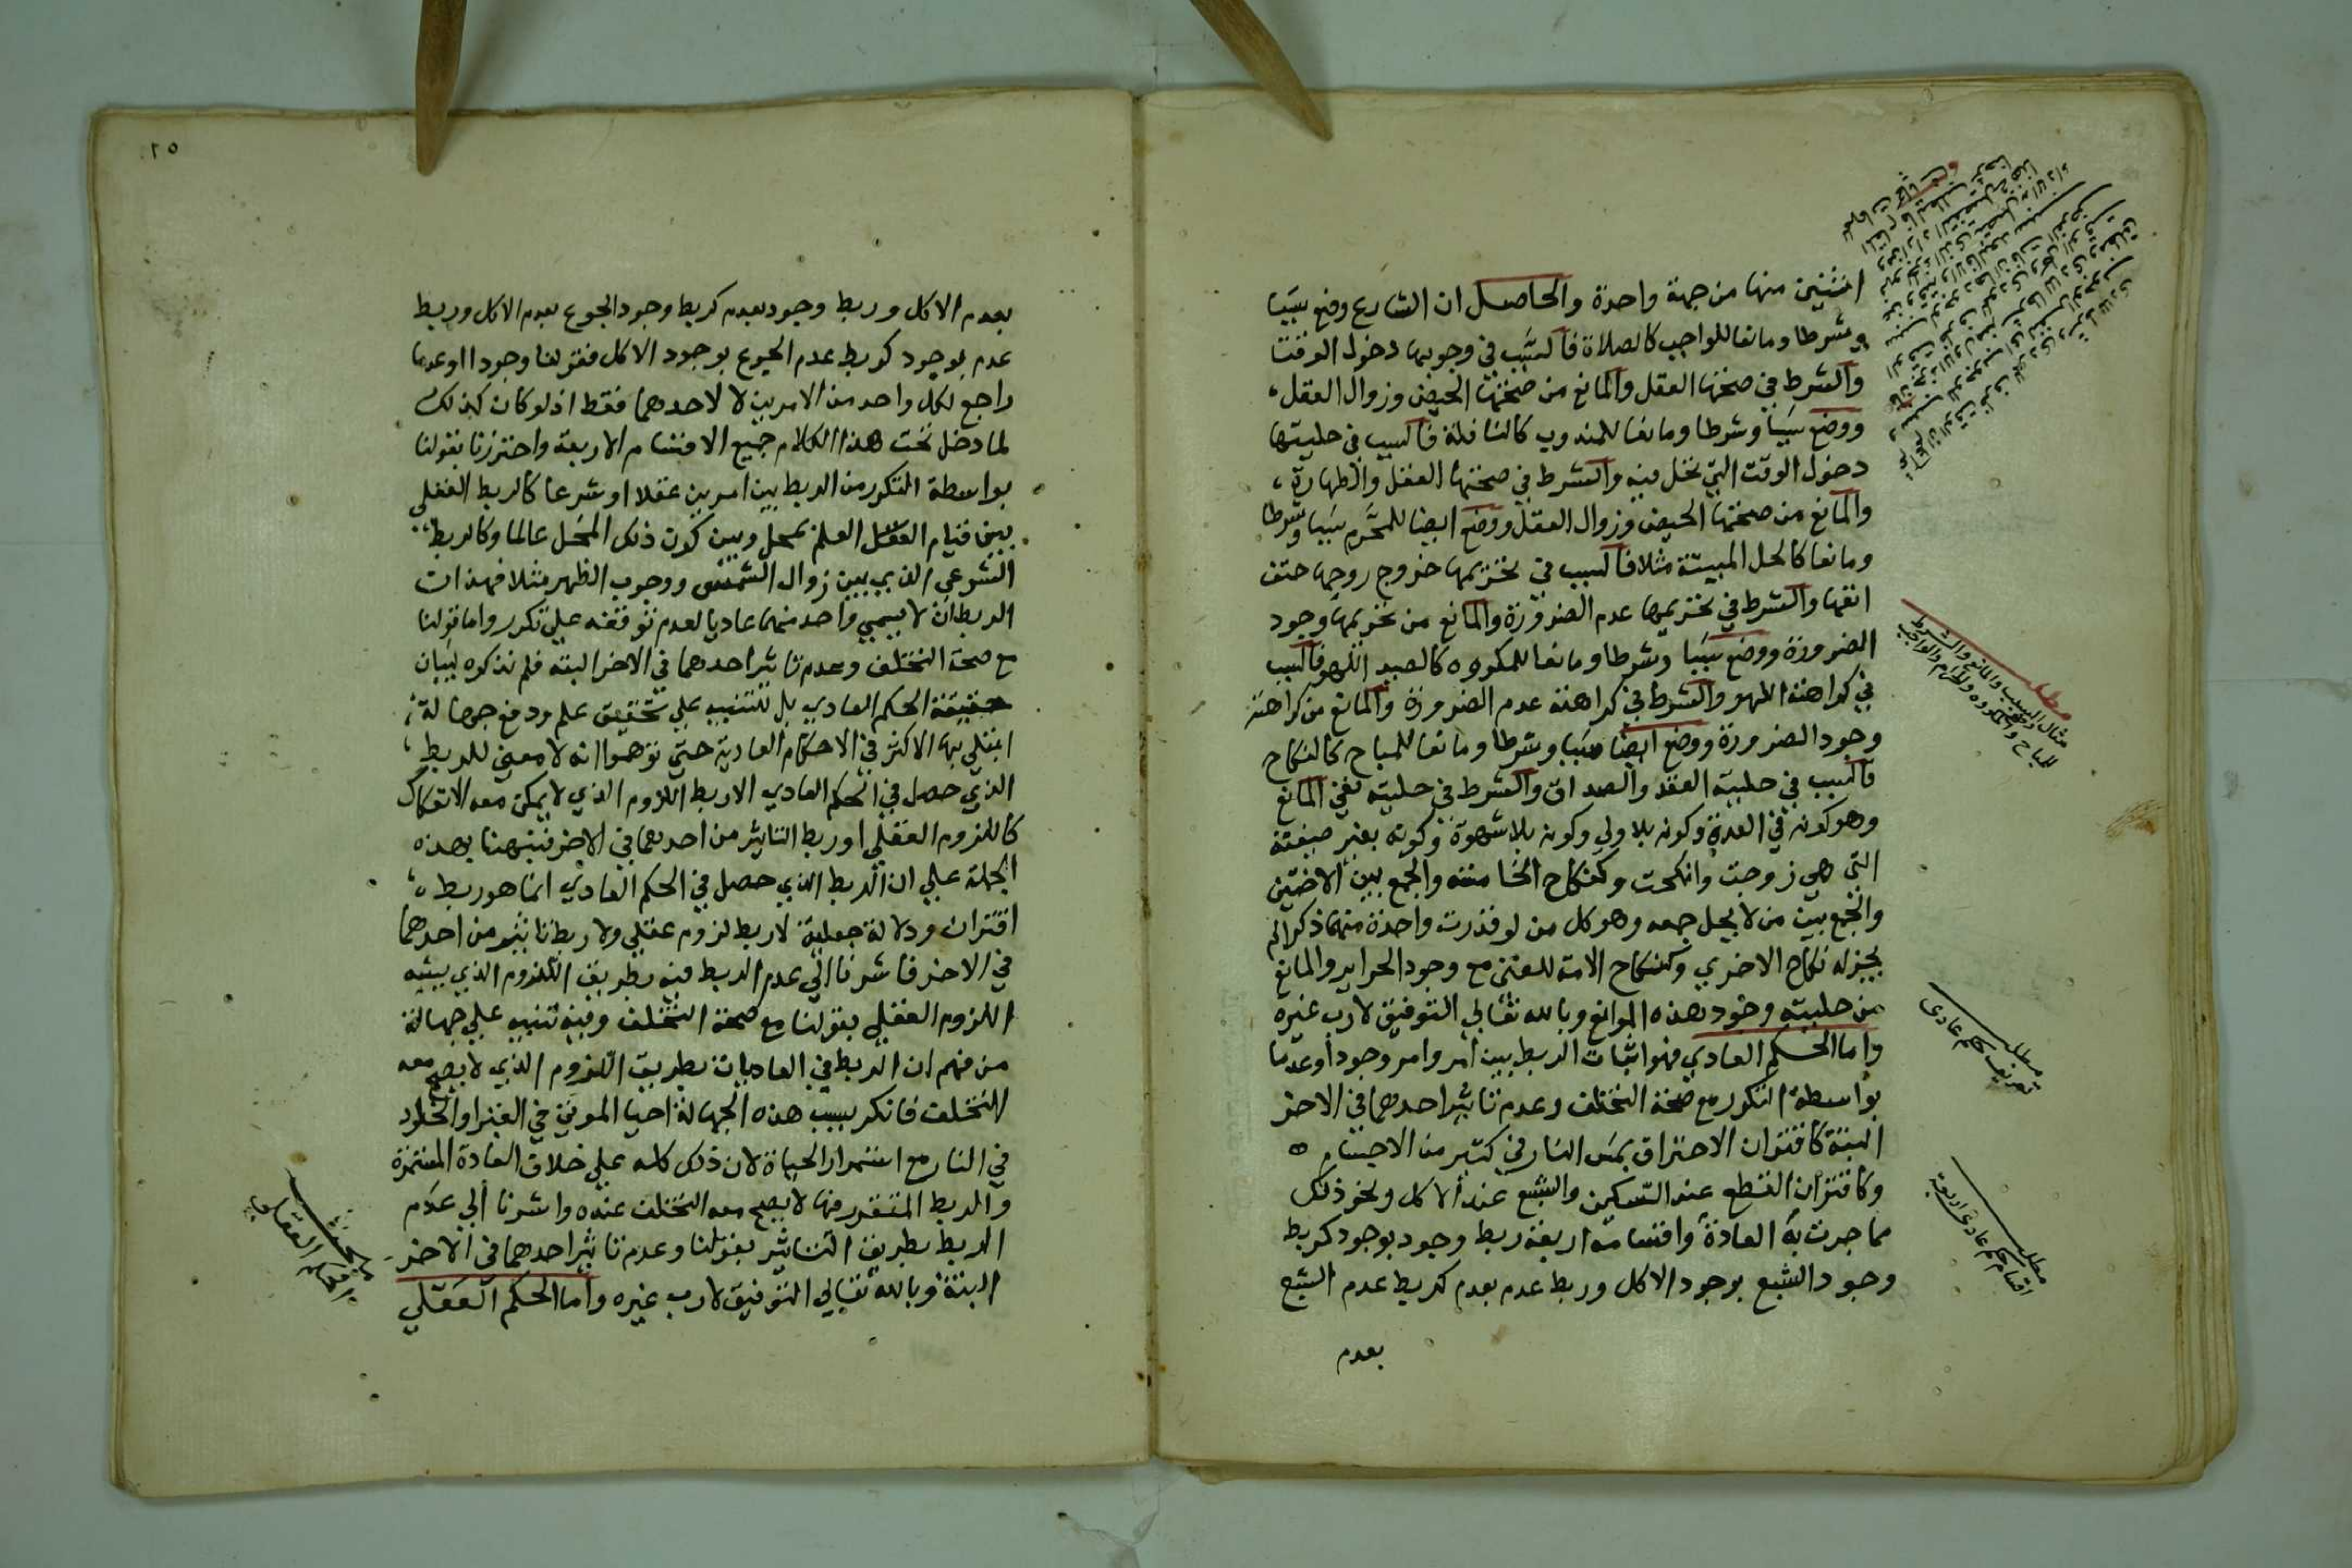 اثنين منها من جهة واحدة والحاصل ان الشارع وضع سببا
وشرطا ومانعا للواجب كالصلاة فالسبب في وجوبها دخول الوقت
والشرط في صحتها العقل والمانع من صحتها الحيض وزوال العقل
ووضع سببا وشرطا ومانعا للمندوب كالنافلة فالسبب في حليتها
دخول الوقت التي تحل فيه والشرط في صحتها العقل والطهارة
والمانع من صحتها الحيض وزوال العقل ووضع ايضا للمحرم سببا وشرطا
ومانعا كاكل الميتة مثلا فالسبب في تحريمها خروج روحها حتف
انفها والشرط في تحريمها عدم الضرورة والمانع من تحريمها وجود
الضرورة ووضع سببا وشرطا ومانعا للمكروه كالصيد اللهو فالسبب
في كراهته اللهو والشرط في كراهته عدم الضرورة والمانع من كراهته
وجود الضرورة ووضع ايضا سببا وشرطا ومانعا للمباح كالنكاح
فالسبب في حليته العقد والصداق والشرط في حليته نفي المانع
وهو كونه في العدة وكونه بلا ولي وكونه بلا شهوة وكونه بغير صيغته
التي هي زوجت وانكحت وكنكاح الخامسة والجمع بين الاختين
والجمع بين من لا يحل جمعه وهو كل من لو قدرت واحدة منهما ذكرا لم
يجز له نكاح الاخرى وكنكاح الامة للغني مع وجود الحراير والمانع
من حليته وجود هذه الموانع وبالله تعالي التوفيق لا رب غيره
واما الحكم العادي فهو اثبات الربط بين امر وامر وجودا وعدما
بواسطة التكرر مع صحة التخلف وعدم تاثير احدهما في الاخر
البتة كاقتران الاحتراق بمس النار في كثير من الاجسام ه
وكاقتران القطع عند السكين والشبع عند الاكل ونحو ذلك
مما جرت به العادة واقسامه اربعة ربط وجود بوجود كربط
وجود الشبع بوجود الاكل وربط عدم بعدم كربط عدم الشبع
بعدم
مطلب
مثال السبب والمانع والشرط
للمباح والمكروه والحرام والواجب
مطلب
تعريف حكم عادى
مطلب
اقسام حكم عادى اربعة
٢٥
بعدم الاكل وربط وجود بعدم كربط وجود الجوع بعدم الاكل وربط
عدم بوجود كربط عدم الجوع بوجود الاكل فقولنا وجودا او عدما
راجع لكل واحد من الامرين لا لاحدهما فقط اذ لو كان كذلك
لما دخل تحت هذا الكلام جميع الاقسام الاربعة واحترزنا بقولنا
بواسطة التكرر من الربط بين امرين عقلا او شرعا كالربط العقلي
بين قيام العلم بمحل وبين كون ذلك المحل عالما وكالربط
الشرعي الذي بين زوال الشمس ووجوب الظهر مثلا فهذان
الربطان لا يسمي واحد منهما عاديا لعدم توقفه علي تكرر واما قولنا
مع صحة التخلف وعدم تاثير احدهما في الاخر البته فلم نذكره لبيان
حقيقة الحكم العادي بل للتنبيه علي تحقيق علم ودفع جهالة
ابتلي بها الاكثر في الاحكام العادية حتي توهموا انه لا معني للربط
الذي حصل في الحكم العادي الا ربط اللزوم الذي لا يمكن معه الانفكاك
كاللزوم العقلي او ربط التاثير من احدهما في الاخر فنبهنا بهذه
الجملة علي ان الربط الذي حصل في الحكم العادي انما هو ربط
اقتران ودلالة جعلية لا ربط لزوم عقلي ولا ربط تاثير من احدهما
في الاخر فاشرنا الي عدم الربط فيه بطريق اللزوم الذي يشبه
اللزوم العقلي بقولنا مع صحة التخلف وفيه تنبيه علي جهالة
من فهم ان الربط في العاديات بطريق اللزوم الذي لا يصح معه
التخلف فانكر بسبب هذه الجهالة احيا الموتي في القبر والخلود
في النار مع استمرار الحياة لان ذلك كله علي خلاف العادة المستمرة
والربط المتقرر فيها لا يصح معه التخلف عنده واشرنا الي عدم
الربط بطريق التاثير بقولنا وعدم تاثير احدهما في الاخر
البتة وبالله تعالي التوفيق لا رب غيره واما الحكم العقلي
مبحث
الحكم العقلي